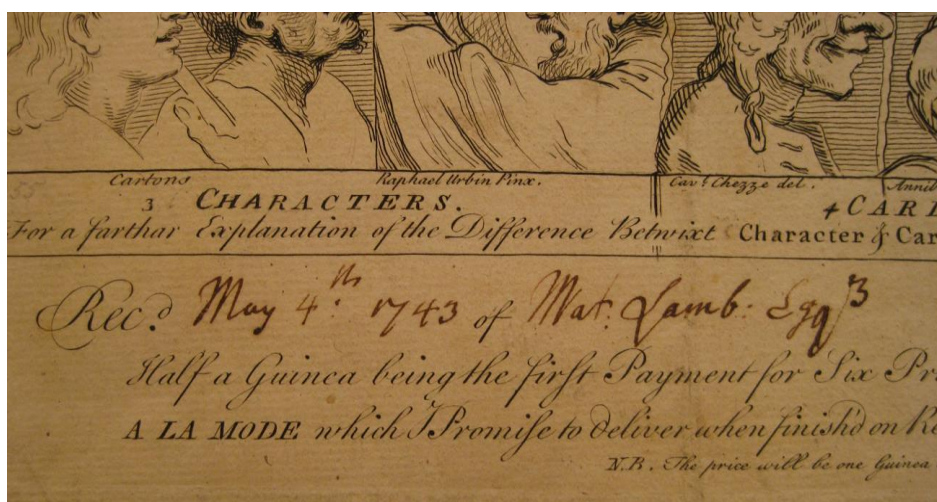 Cartons Raphael Urbin Pinx. Cav.t Chezze del. Annib
3 CHARACTERS. 4 CARI
For a farthar Explanation of the Difference Betwixt Character & Car
Rec.d May 4.th 1743 of Mat. Lamb: Esqr
Half a Guinea being the first Payment for Six Pr
A LA MODE which I Promise to deliver when finish'd on Re
N.B. The price will be one Guinea